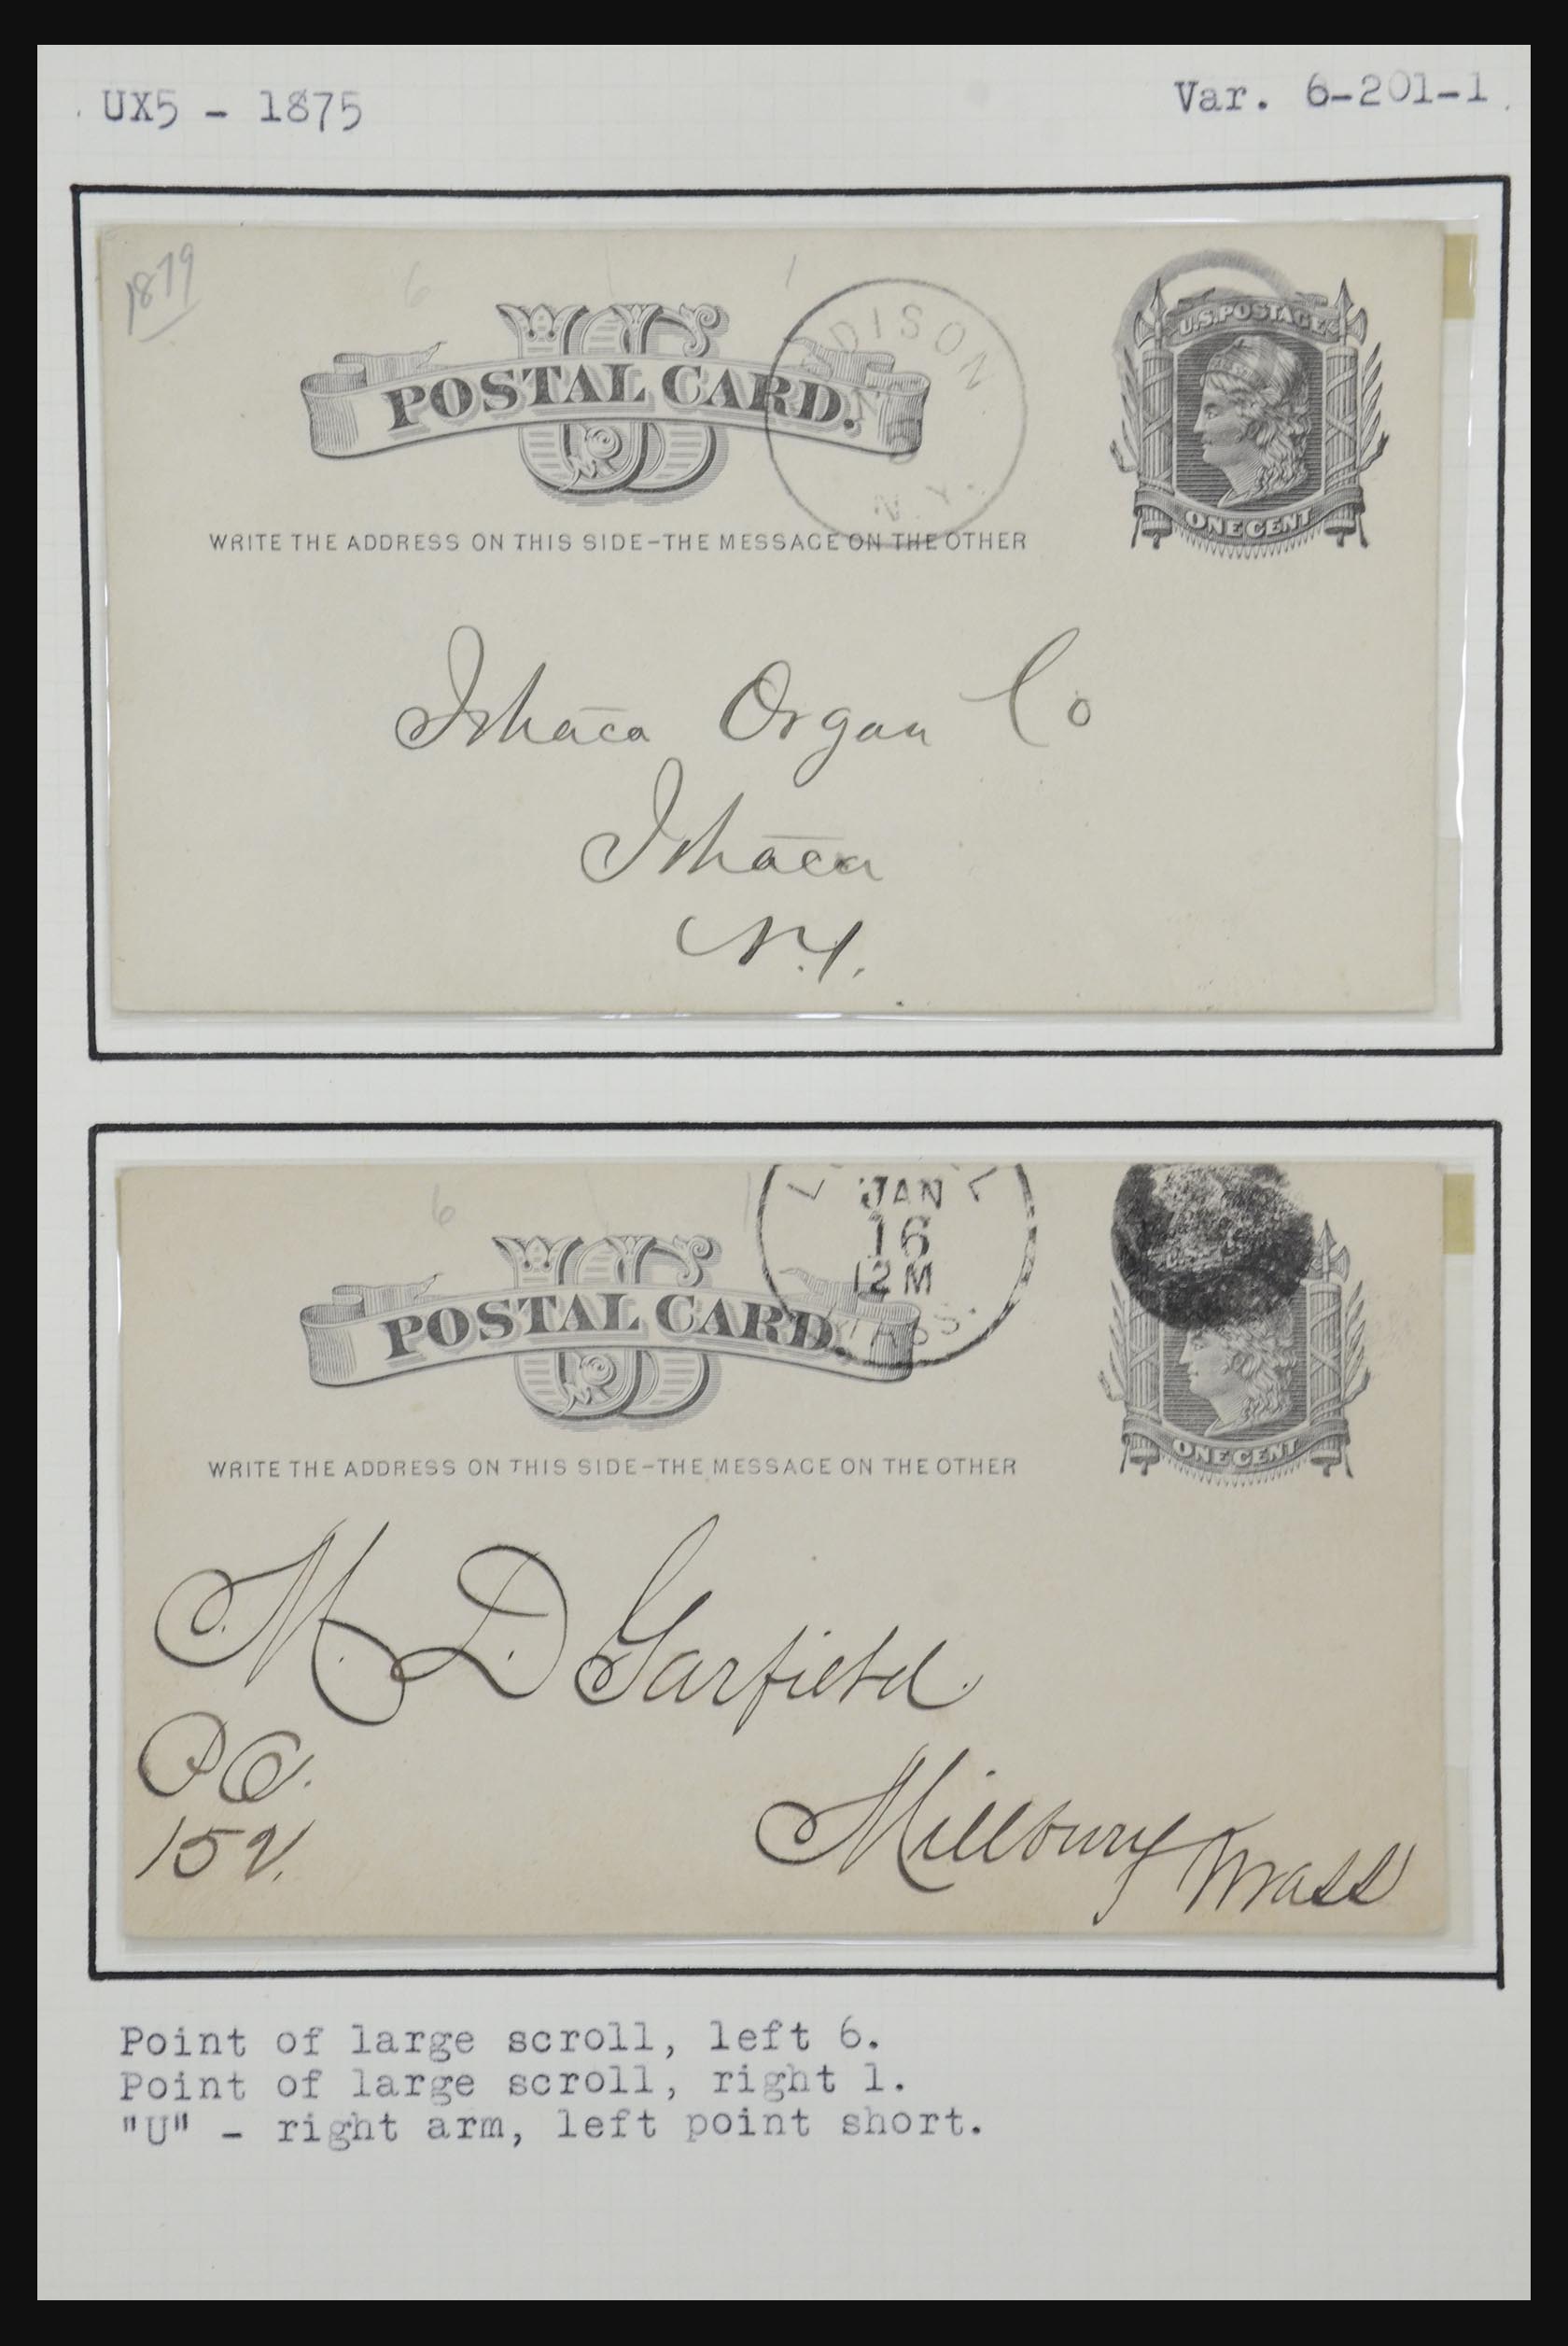 UX5 - 1875
Var. 6-201-1
1879
6 1 1
U.S.POSTAGE
US
POSTAL CARD.
DISON
N.Y.
ONE CENT
WRITE THE ADDRESS ON THIS SIDE-THE MESSAGE ON THE OTHER
Ithaca Organ Co
Ithaca
N.Y.
6 1 1
JAN
16
12 M
MASS.
US
POSTAL CARD.
ONE CENT
WRITE THE ADDRESS ON THIS SIDE-THE MESSAGE ON THE OTHER
M. D. Garfield.
Millbury Mass
Point of large scroll, left 6.
Point of large scroll, right 1.
"U" - right arm, left point short.